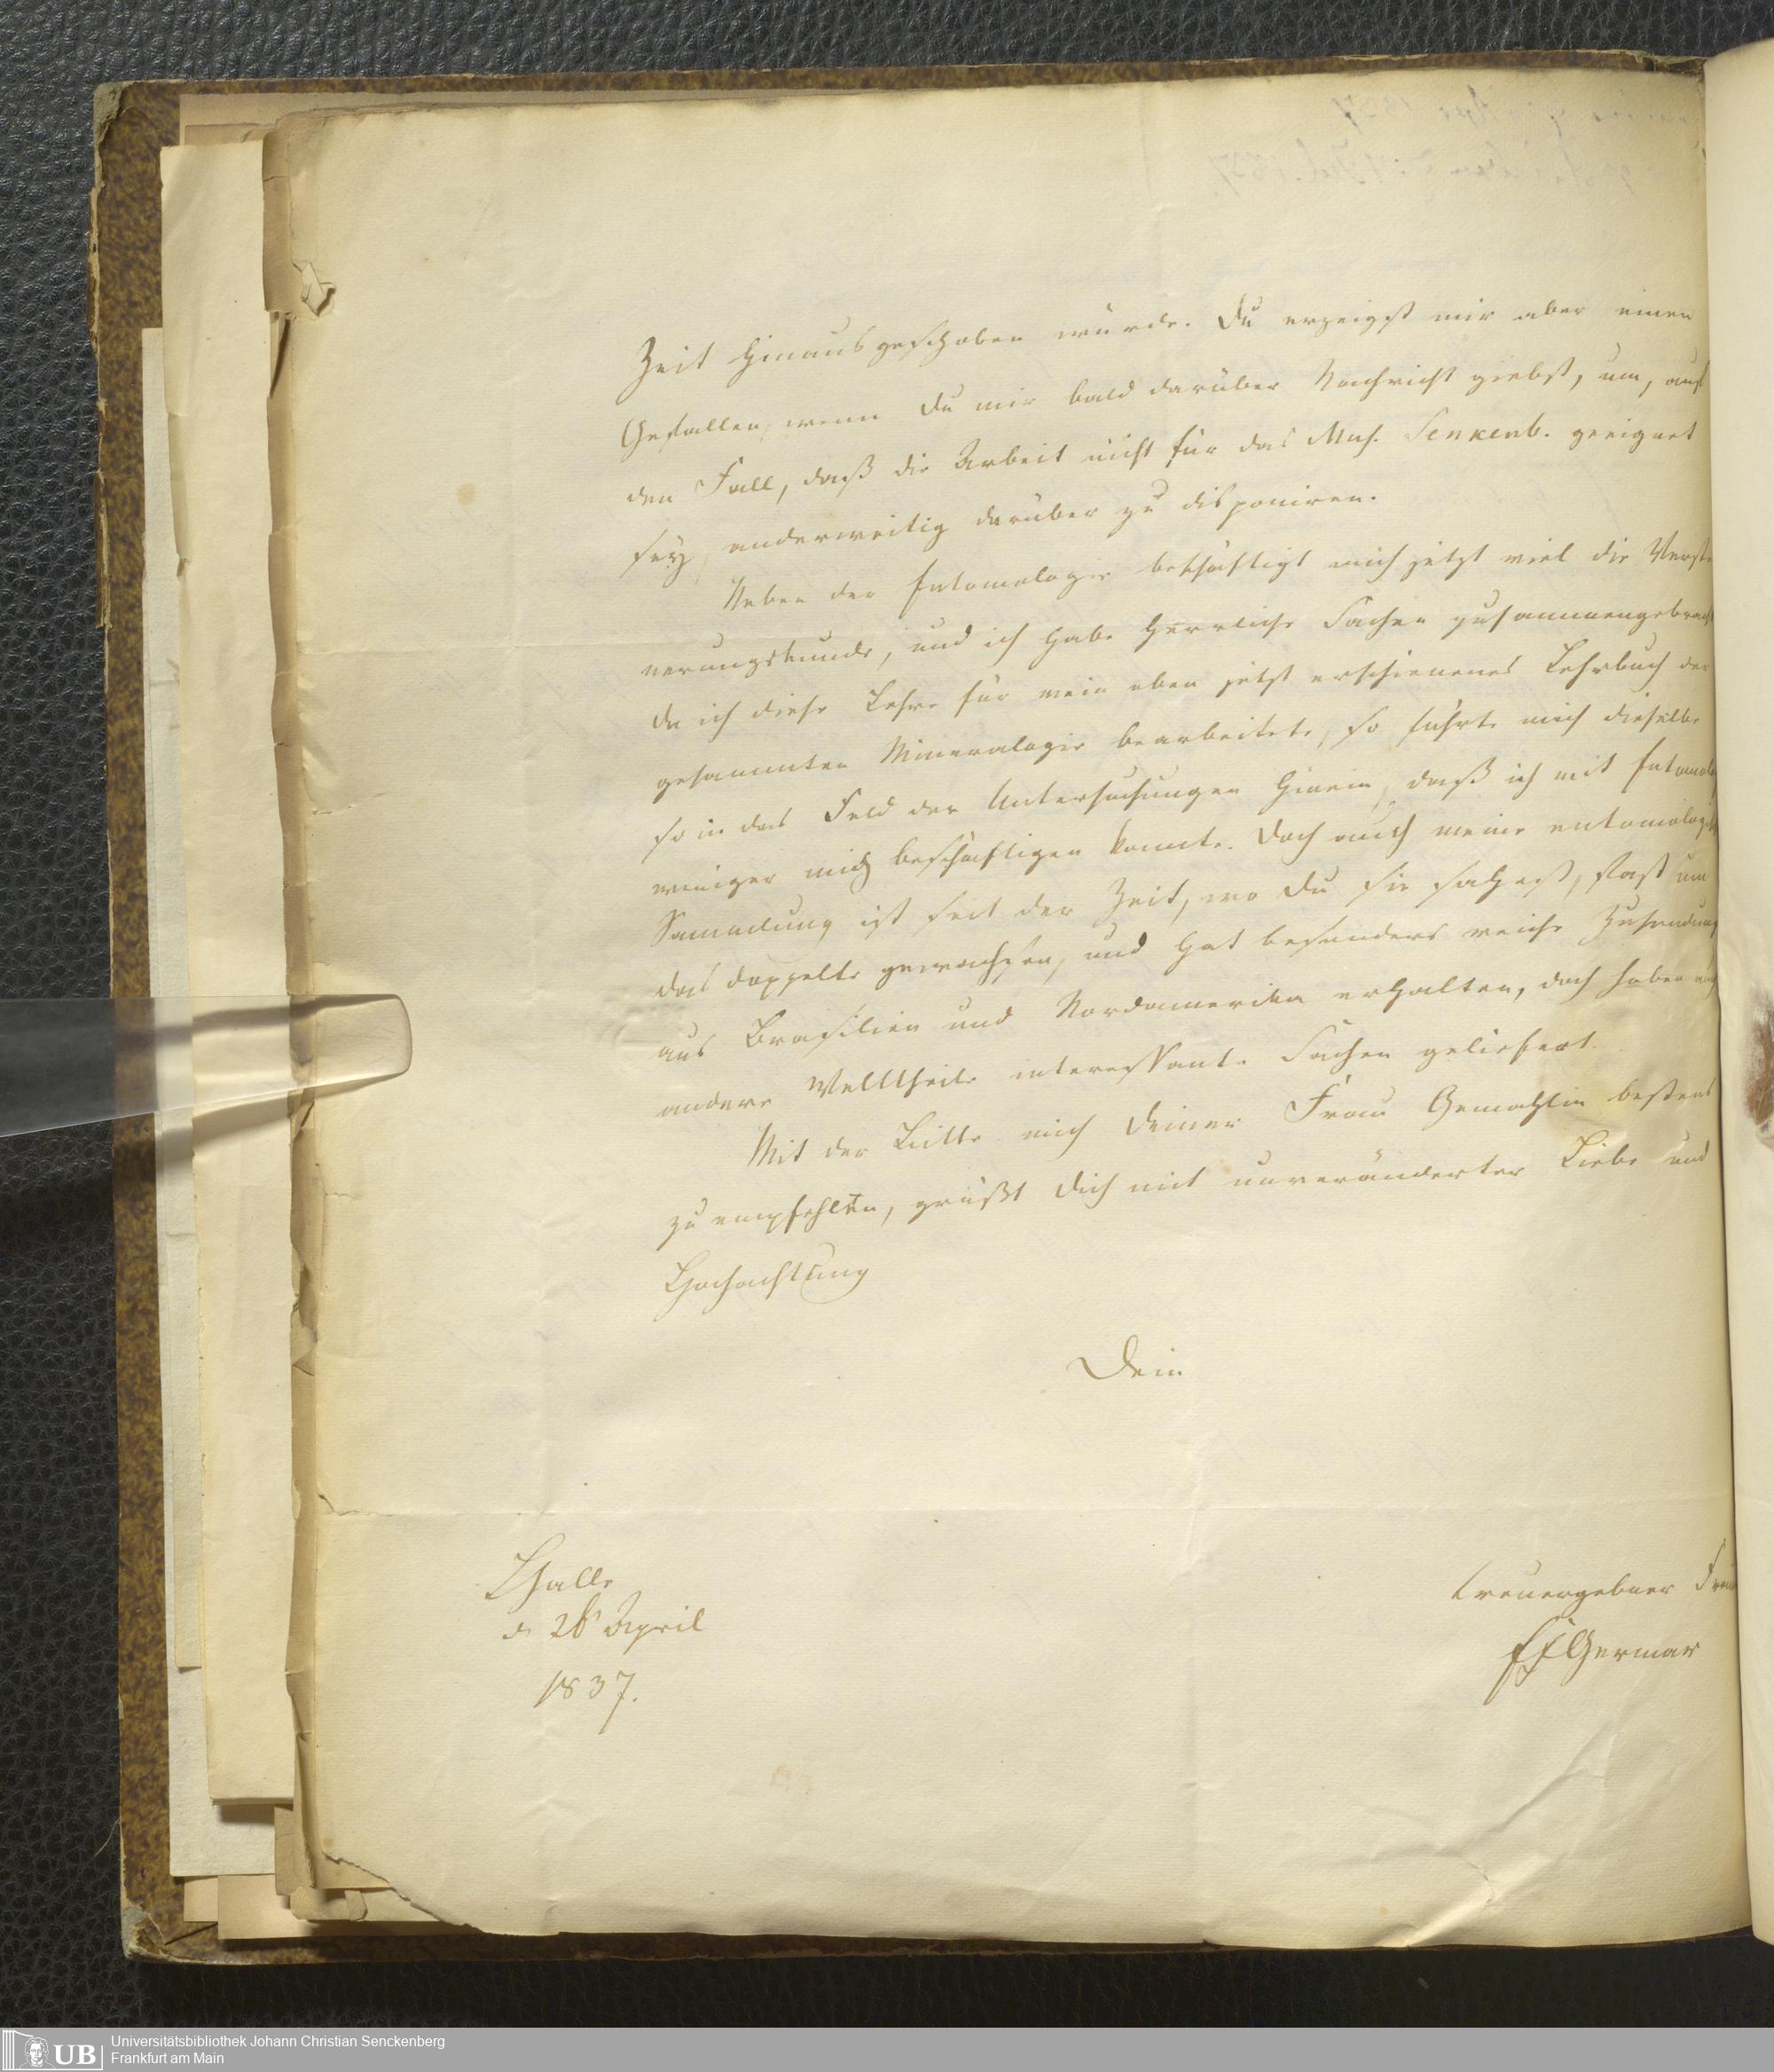 Zeit hinausgeschoben würde. Du erzeigst mir aber einen
Gefallen, wenn Du mir bald darüber Nachricht giebst, um, auf
den Fall, daß die Arbeit nicht für das Mus. Senkenb. geeignet
sey, anderweitig darüber zu disponiren.
Neben der Entomologie beschäftigt mich jetzt viel die Verste
nerungskunde, und ich habe herrliche Sachen zusammengebracht
da ich diese Lehre für mein eben jetzt erschienenes Lehrbuch der
gesammten Mineralogie bearbeitete, so führte mich dieselbe
so in das Feld der Untersuchungen hinein, daß ich mit Entomolog
weniger mich beschäftigen konnte. Doch auch meine entomologisch
Sammlung ist seit der Zeit, wo Du sie sahest, fast um
das doppelte gewachsen, und hat besonders reiche Zusendung
aus Brasilien und Nordamerika erhalten, doch haben auch
andere Welttheile interessante Sachen geliefert.
Mit der Bitte mich Deiner Frau Gemahlin bestens
zu empfehlen, grüßt Dich mit unveränderter Liebe und
Hochachtung
Dein
treuergebner Freu
EFGermar
Halle
d 26 April
1837.
UB
Universitätsbibliothek Johann Christian Senckenberg
Frankfurt am Main